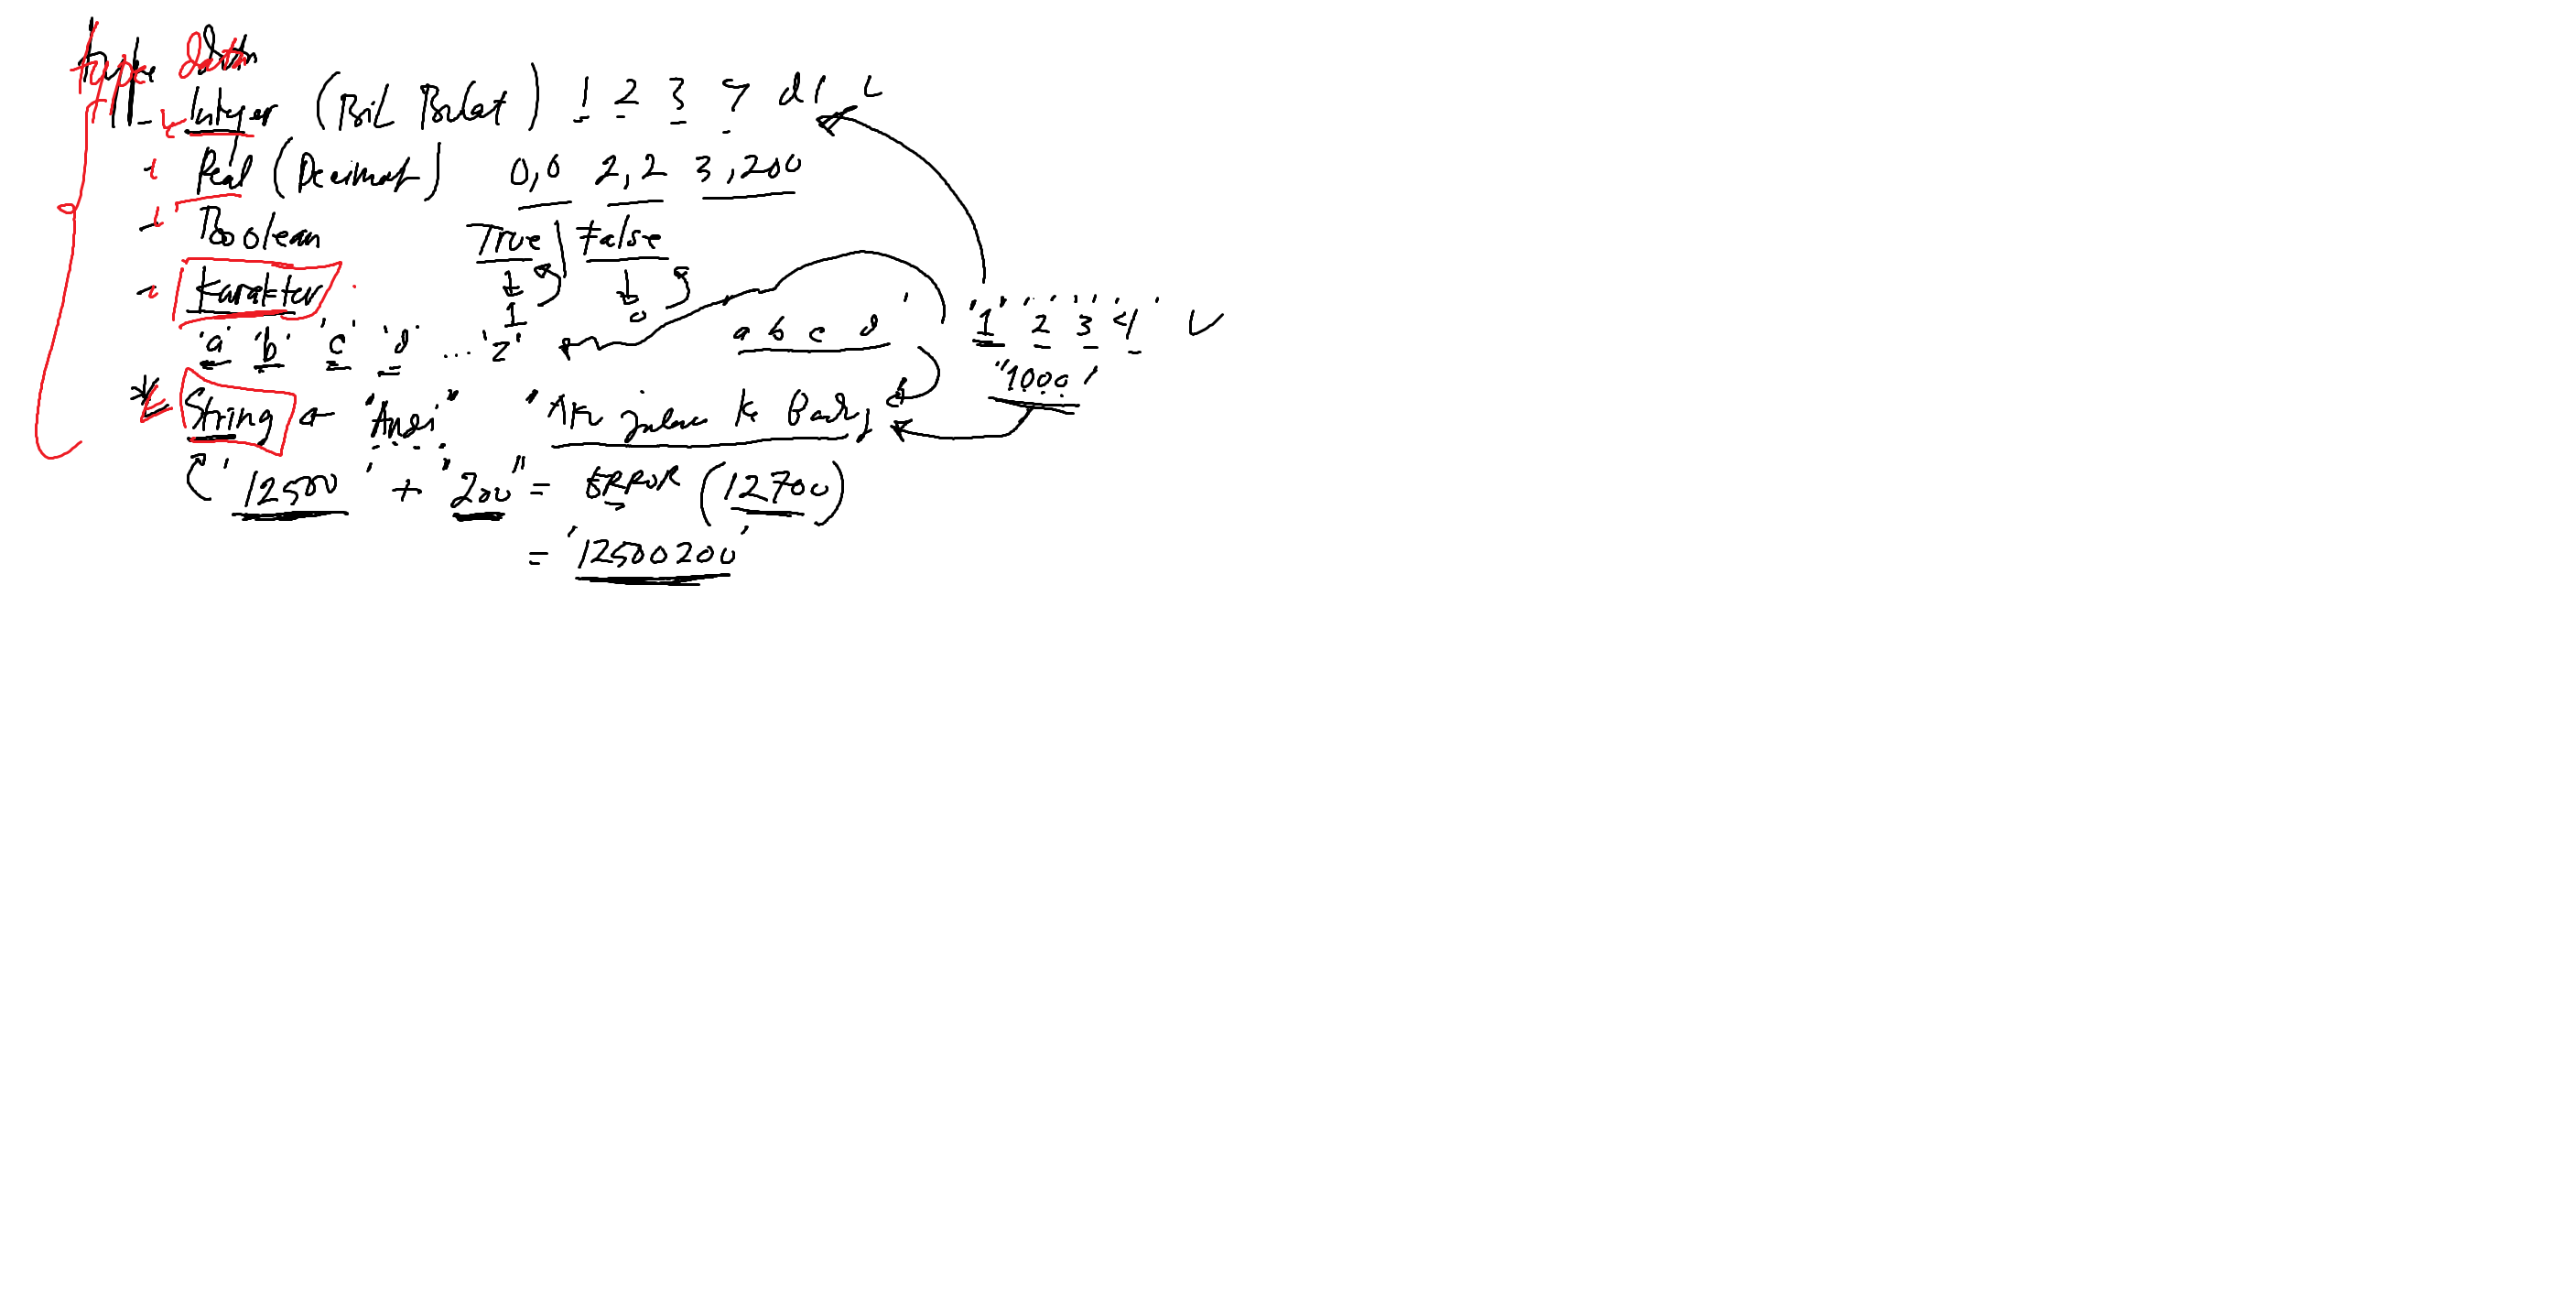 type data
- Integer (Bil Bulat) 1 2 3 4 dll
- Real (Decimal) 0,0 2,2 3,200
- Boolean True | False
1 0
- Karakter
'a' 'b' 'c' 'd' ... 'z' a b c d '1' '2' '3' '4'
"1000"
String "Andi" "Aku jalan ke
'12500' + "200" = ERROR (12700)
= '12500200'